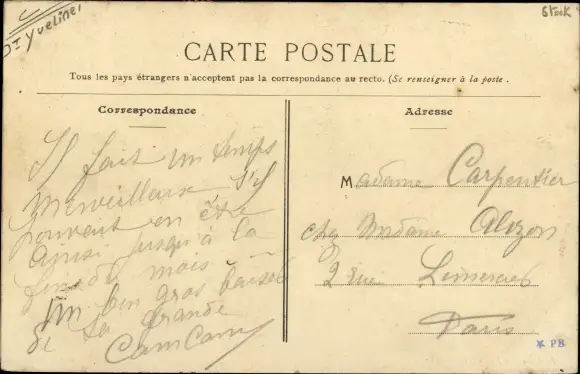 DI Yvelines
Stock
CARTE POSTALE
Tous les pays étrangers n'acceptent pas la correspondance au recto. (Se renseigner à la poste.
Correspondance
Il fait un temps
merveilleux S'il
pouvait en être
ainsi jusqu'à la
fin du mois
Un bon gros baiser
de ta grande
CamCam
Adresse
Madame Carpentier
chez Madame Alizon
2 rue
Paris
* PB